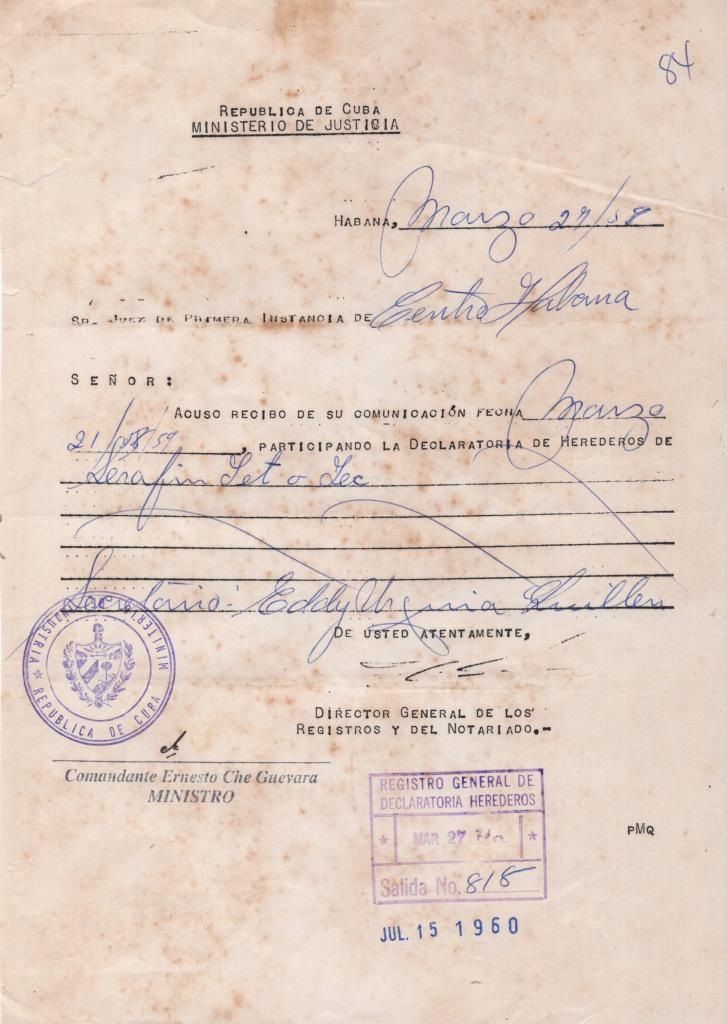 84
REPUBLICA DE CUBA
MINISTERIO DE JUSTICIA
HABANA, Marzo 27/59
SR. JUEZ DE PRIMERA INSTANCIA DE Centro Habana
SEÑOR:
ACUSO RECIBO DE SU COMUNICACIÓN FECHA Marzo
21/ /59, PARTICIPANDO LA DECLARATORIA DE HEREDEROS DE
Serafin Set o Sec
Secretario: Eddy Urquia Guillen
DE USTED ATENTAMENTE,
MINISTERIO DE INDUSTRIA
REPUBLICA DE CUBA
DIRECTOR GENERAL DE LOS
REGISTROS Y DEL NOTARIADO.-
Comandante Ernesto Che Guevara
MINISTRO
REGISTRO GENERAL DE
DECLARATORIA HEREDEROS
MAR 27
Salida No. 818
PMQ
JUL. 15 1960